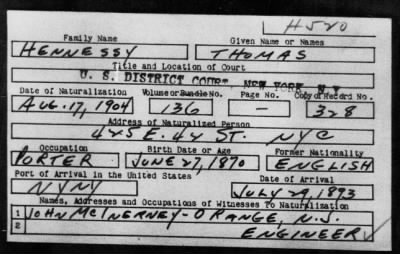 H520
Family Name Given Name or Names
HENNESSY THOMAS
Title and Location of Court
U. S. DISTRICT COURT, NEW YORK, N.Y.
Date of Naturalization Volume or Bundle No. Page No. Copy of Record No.
AUG. 17, 1904 136 — 328
Address of Naturalized Person
445 E. 44 ST. NYC
Occupation Birth Date or Age Former Nationality
PORTER JUNE 27, 1870 ENGLISH
Port of Arrival in the United States Date of Arrival
NYNY JULY 29, 1893
Names, Addresses and Occupations of Witnesses To Naturalization
1 JOHN MCINERNEY-ORANGE, N.J.
2 ENGINEER